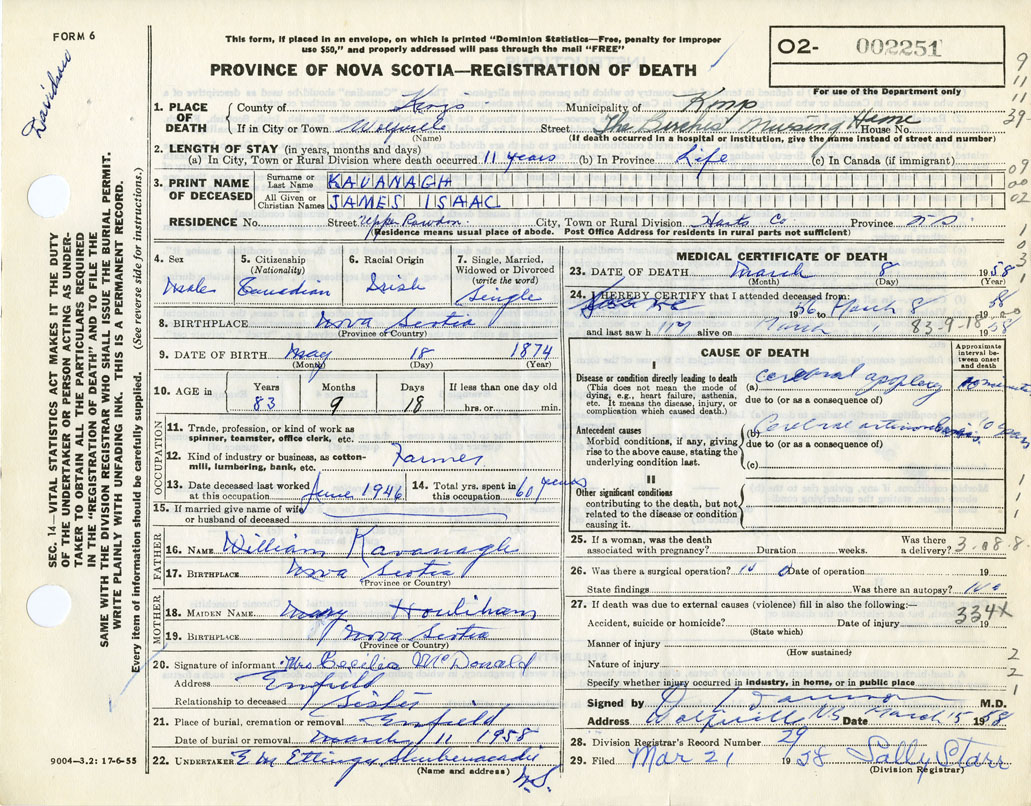 FORM 6
Davidson
This form, if placed in an envelope, on which is printed "Dominion Statistics—Free, penalty for improper
use $50," and properly addressed will pass through the mail "FREE"
PROVINCE OF NOVA SCOTIA—REGISTRATION OF DEATH
O2- 002251
For use of the Department only
1. PLACE OF DEATH { County of Kings Municipality of
If in City or Town Wolfville (Name) Street The Birches Nursing Home House No.
(If death occurred in a hospital or institution, give the name instead of street and number)
2. LENGTH OF STAY (in years, months and days)
(a) In City, Town or Rural Division where death occurred 11 years (b) In Province Life (c) In Canada (if immigrant)
3. PRINT NAME OF DECEASED { Surname or Last Name KAVANAGH
All Given or Christian Names JAMES ISAAC
RESIDENCE No. Street Upper Rawdon City, Town or Rural Division Hants Co Province NS
(Residence means usual place of abode. Post Office Address for residents in rural parts not sufficient)
4. Sex Male
5. Citizenship (Nationality) Canadian
6. Racial Origin Irish
7. Single, Married, Widowed or Divorced (write the word) Single
8. BIRTHPLACE Nova Scotia
(Province or Country)
9. DATE OF BIRTH May 18 1874
(Month) (Day) (Year)
10. AGE in Years 83 Months 9 Days 18 If less than one day old hrs. or min.
OCCUPATION
11. Trade, profession, or kind of work as spinner, teamster, office clerk, etc.
12. Kind of industry or business, as cotton-mill, lumbering, bank, etc. Farmer
13. Date deceased last worked at this occupation June 1946
14. Total yrs. spent in this occupation 60 years
15. If married give name of wife or husband of deceased
FATHER
16. NAME William Kavanagh
17. BIRTHPLACE Nova Scotia
(Province or Country)
MOTHER
18. MAIDEN NAME Mary Houlihan
19. BIRTHPLACE Nova Scotia
(Province or Country)
20. Signature of informant Mrs Cecilia McDonald
Address Enfield
Relationship to deceased Sister
21. Place of burial, cremation or removal Enfield
Date of burial or removal March 11 1958
22. UNDERTAKER E M Ettinger Shubenacadie N.S.
(Name and address)
9004—3.2: 17-6-55
MEDICAL CERTIFICATE OF DEATH
23. DATE OF DEATH March 8 1958
(Month) (Day) (Year)
24. I HEREBY CERTIFY that I attended deceased from:
1956 to March 8 1958
and last saw him alive on March 1 1958
83-9-18
CAUSE OF DEATH
Approximate interval between onset and death
I
Disease or condition directly leading to death
(This does not mean the mode of dying, e.g., heart failure, asthenia, etc. It means the disease, injury, or complication which caused death.)
(a) Cerebral apoplexy
due to (or as a consequence of)
Antecedent causes
Morbid conditions, if any, giving rise to the above cause, stating the underlying condition last.
(b) Cerebral arteriosclerosis 10 years
due to (or as a consequence of)
(c)
II
Other significant conditions
contributing to the death, but not related to the disease or condition causing it.
25. If a woman, was the death associated with pregnancy? Duration weeks. Was there a delivery? 3-08-8-
26. Was there a surgical operation? No Date of operation 19
State findings Was there an autopsy? No
27. If death was due to external causes (violence) fill in also the following:— 334X
Accident, suicide or homicide? Date of injury 19
(State which)
Manner of injury
(How sustained)
Nature of injury
Specify whether injury occurred in industry, in home, or in public place
Signed by M.D.
Address Wolfville NS Date March 15 1958
28. Division Registrar's Record Number 29
29. Filed Mar 21 1958 Sally Starr
(Division Registrar)
SEC. 14—VITAL STATISTICS ACT MAKES IT THE DUTY
OF THE UNDERTAKER OR PERSON ACTING AS UNDER-
TAKER TO OBTAIN ALL THE PARTICULARS REQUIRED
IN THE "REGISTRATION OF DEATH" AND TO FILE THE
SAME WITH THE DIVISION REGISTRAR WHO SHALL ISSUE THE BURIAL PERMIT.
WRITE PLAINLY WITH UNFADING INK. THIS IS A PERMANENT RECORD.
Every item of information should be carefully supplied. (See reverse side for instructions.)
9
11
11
39-
09
00
02
1
0
3
1
1
1
2
2
1